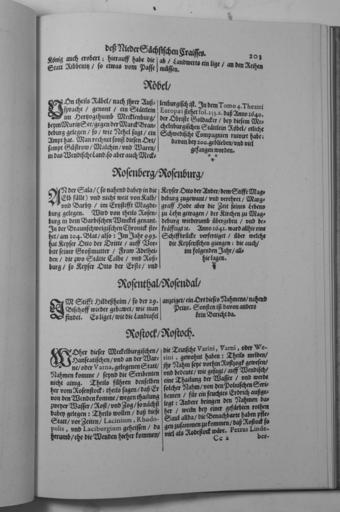 deß NiederSächsischen Craisses.
203
König auch erobert; hierauff habe die
Statt Ribbenitz / so etwas vom Passe
ab / Landwerts ein lige / an den Reihen
müssen.
Röbel /
Von theils Räbel / nach jhrer Auß-
sprache / genant / ein Stättlein
im Hertzogthumb Mecklenburg /
gegen der Marck Bran-
denburg gelegen / so / wie Nehel sagt / ein
Ampt hat. Man rechnet sonst diesen Ort /
sampt Güstrow / Malchin / und Waren /
in das Wendische Land so aber auch Meck-
lenburgisch ist. In dem Tomo 4. Theatri
Europæi stehet fol. 213.a. daß Anno 1640.
der Obriste Goldacker / bey diesem Me-
chelnburgischen Stättlein Röbel / etliche
Schwedische Compagnien ruinirt habe:
davon bey 200. geblieben / und viel
gefangen worden.
Rosenberg / Rosenburg /
AN der Sala / (so nahend dabey in die
Elb fällt) und nicht weit von Kalb /
und Barby / im Ertzstifft Magde-
burg gelegen. Wird von theils Rosen-
burg in dem Barbischen Winckel genant.
In der Braunschweigischen Chronick ste-
het / am 104. Blat / also: Im Jahr 993.
hat Keyser Otto der Dritte / auff Vor-
bitt seiner Großmutter / Fraw Adelhei-
den / die zwo Stätte Calbe / und Rosen-
burg / so Keyser Otto der Erste / und
Keyser Otto der Ander / dem Stifft Mag-
deburg zugewant / und verehret /
graff Hode aber die Zeit seines Lebens
zu Lehn getragen / der Kirchen zu Mag-
deburg wiederumb übergeben / und be-
kräfftiget. Anno 1642. ward allhie eine
Schiffbrücke verfertiget / über welche
die Keyserischen giengen: die auch /
im folgenden Jahr / all-
hie lagen.
Rosenthal / Rosendal /
IM Stifft Hildesheim / so der 29.
Bischoff wieder gebawet / wie man
findet. Es liget / wie die Landtafel
anzeiget / ein Ort dieses Nahmens / nahend
Peine. Sonsten ist davon anders
kein Bericht da.
Rostock / Rostoch.
WOher dieser Mecklenburgischen /
Hanseatischen / und an der War-
ne / oder Varna, gelegenen Statt /
Nahmen komme / seynd die Scribenten
nicht ainig. Theils führen denselben
her vom Rosenstock: theils sagen / daß Er
von den Wenden komme / wegen theilung
zweyer Wasser / Rost / und Zog / so nächst
dabey gelegen: Theils wollen / daß diese
Statt / vor Zeiten / Lacinium, Rhodo-
polis, und Laciburgium geheissen / da
/ ehe die Wenden hieher kommen /
die Teutsche Varini, Varni, oder We-
rini, gewohnt haben: Theils melden /
jhr Nahm seye vorhin Rostzogk gewesen /
und bedeute / wie gesagt / auff Wendisch /
eine Theilung der Wasser / und werde
solcher Nahm / von den Polnischen Scri-
benten / für ein feuchtes Erdrich außge-
legt: Andere bringen den Nahmen da-
her / weiln bey einer gefärbten rothen
Saul allda / die Benachbarte haben pfle-
gen zusammen zu kommen / daß Rostock so
viel als Rodestock wäre. Petrus Linde-
Cc 2
ber-